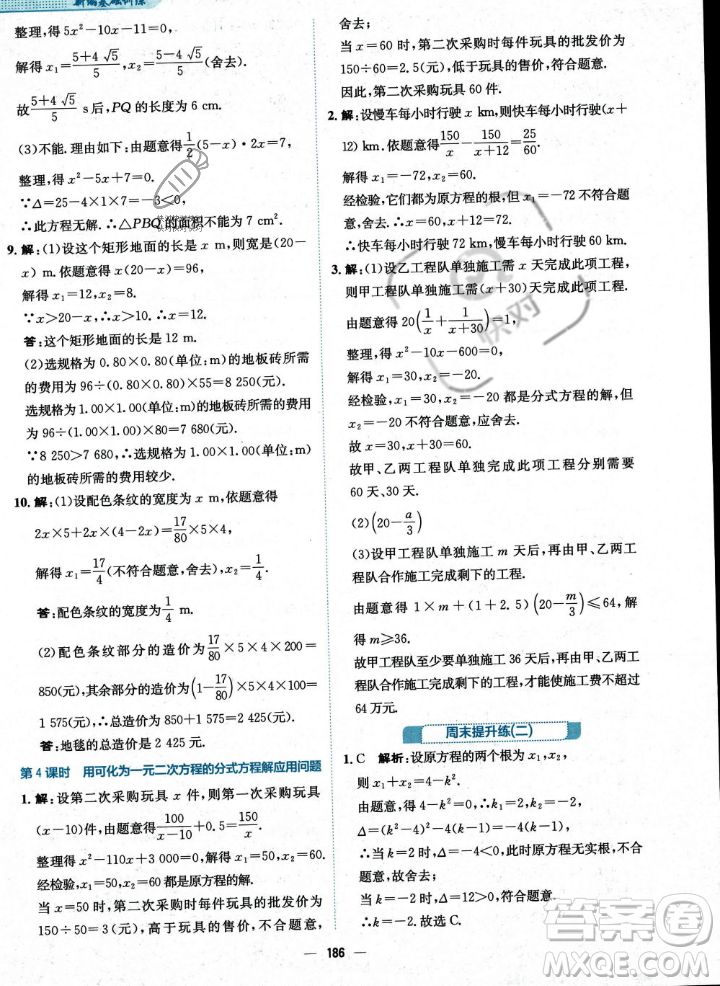 新编基础训练
整理,得5x²-10x-11=0.
解得x₁=(5+4√5)/5,x₂=(5-4√5)/5(舍去).
故(5+4√5)/5 s后,PQ的长度为6 cm.
(3)不能.理由如下:由题意得1/2(5-x)·2x=7.
整理,得x²-5x+7=0.
∵Δ=25-4×1×7=-3<0,
∴此方程无解.∴△PBQ的面积不能为7 cm².
9.解:(1)设这个矩形地面的长是x m,则宽是(20-
x) m.依题意得x(20-x)=96.
解得x₁=12,x₂=8.
∵x>20-x,∴x>10.∴x=12.
答:这个矩形地面的长是12 m.
(2)选规格为0.80×0.80(单位:m)的地板砖所需
的费用为96÷(0.80×0.80)×55=8 250(元).
选规格为1.00×1.00(单位:m)的地板砖所需的费用
为96÷(1.00×1.00)×80=7 680(元).
∵8 250>7 680,∴选规格为1.00×1.00(单位:m)
的地板砖所需的费用较少.
10.解:(1)设配色条纹的宽度为x m,依题意得
2x×5+2x×(4-2x)=17/80×5×4,
解得x₁=17/4(不符合题意,舍去),x₂=1/4.
答:配色条纹的宽度为1/4 m.
(2)配色条纹部分的造价为17/80×5×4×200=
850(元),其余部分的造价为(1-17/80)×5×4×100=
1 575(元),∴总造价为850+1 575=2 425(元).
答:地毯的总造价是2 425元.
第4课时 用可化为一元二次方程的分式方程解应用问题
1.解:设第二次采购玩具x件,则第一次采购玩具
(x-10)件,由题意得100/(x-10)+0.5=150/x.
整理得x²-110x+3 000=0,解得x₁=50,x₂=60.
经检验x₁=50,x₂=60都是原方程的解.
当x=50时,第二次采购时每件玩具的批发价为
150÷50=3(元),高于玩具的售价,不合题意,
舍去;
当x=60时,第二次采购时每件玩具的批发价为
150÷60=2.5(元),低于玩具的售价,符合题意.
因此,第二次采购玩具60件.
2.解:设慢车每小时行驶x km,则快车每小时行驶(x+
12) km.依题意得150/x-150/(x+12)=25/60.
解得x₁=60,x₂=-72.
经检验,它们都为原方程的根,但x=-72不符合题
意,舍去.∴x=60,x+12=72.
∴快车每小时行驶72 km,慢车每小时行驶60 km.
3.解:(1)设乙工程队单独施工需x天完成此项工程,
则甲工程队单独施工需(x+30)天完成此项工程.
由题意得20(1/x+1/(x+30))=1.
整理,得x²-10x-600=0.
解得x₁=30,x₂=-20.
经检验,x₁=30,x₂=-20都是分式方程的解,
但x=-20不符合题意,应舍去.
故x=30,x+30=60.
故甲、乙两工程队单独完成此项工程分别需要
60天、30天.
(2)(20-a/3)
(3)设甲工程队单独施工m天,再由甲、乙两工
程队合作施工完成剩下的工程.
由题意得1×m+(1+2.5)(20-m/3)≤64,
解得m≥36.
故甲工程队至少要单独施工36天后,再由甲、乙两
工程队合作完成剩下的工程,才能使施工费不超过
64万元.
周末提升练(二)
1.C 解析:设原方程的两个根为x₁,x₂,
则x₁+x₂=4-k².
由题意,得4-k²=0.∴k₁=2,k₂=-2.
Δ=(k²-4)²-4(k-1)=-4(k-1).
当k=2时,Δ=-4<0,此时原方程无实根,
故舍去;
当k=-2时,Δ=12>0,符合题意.
∴k=-2.故选C.
186
快对
答案圈